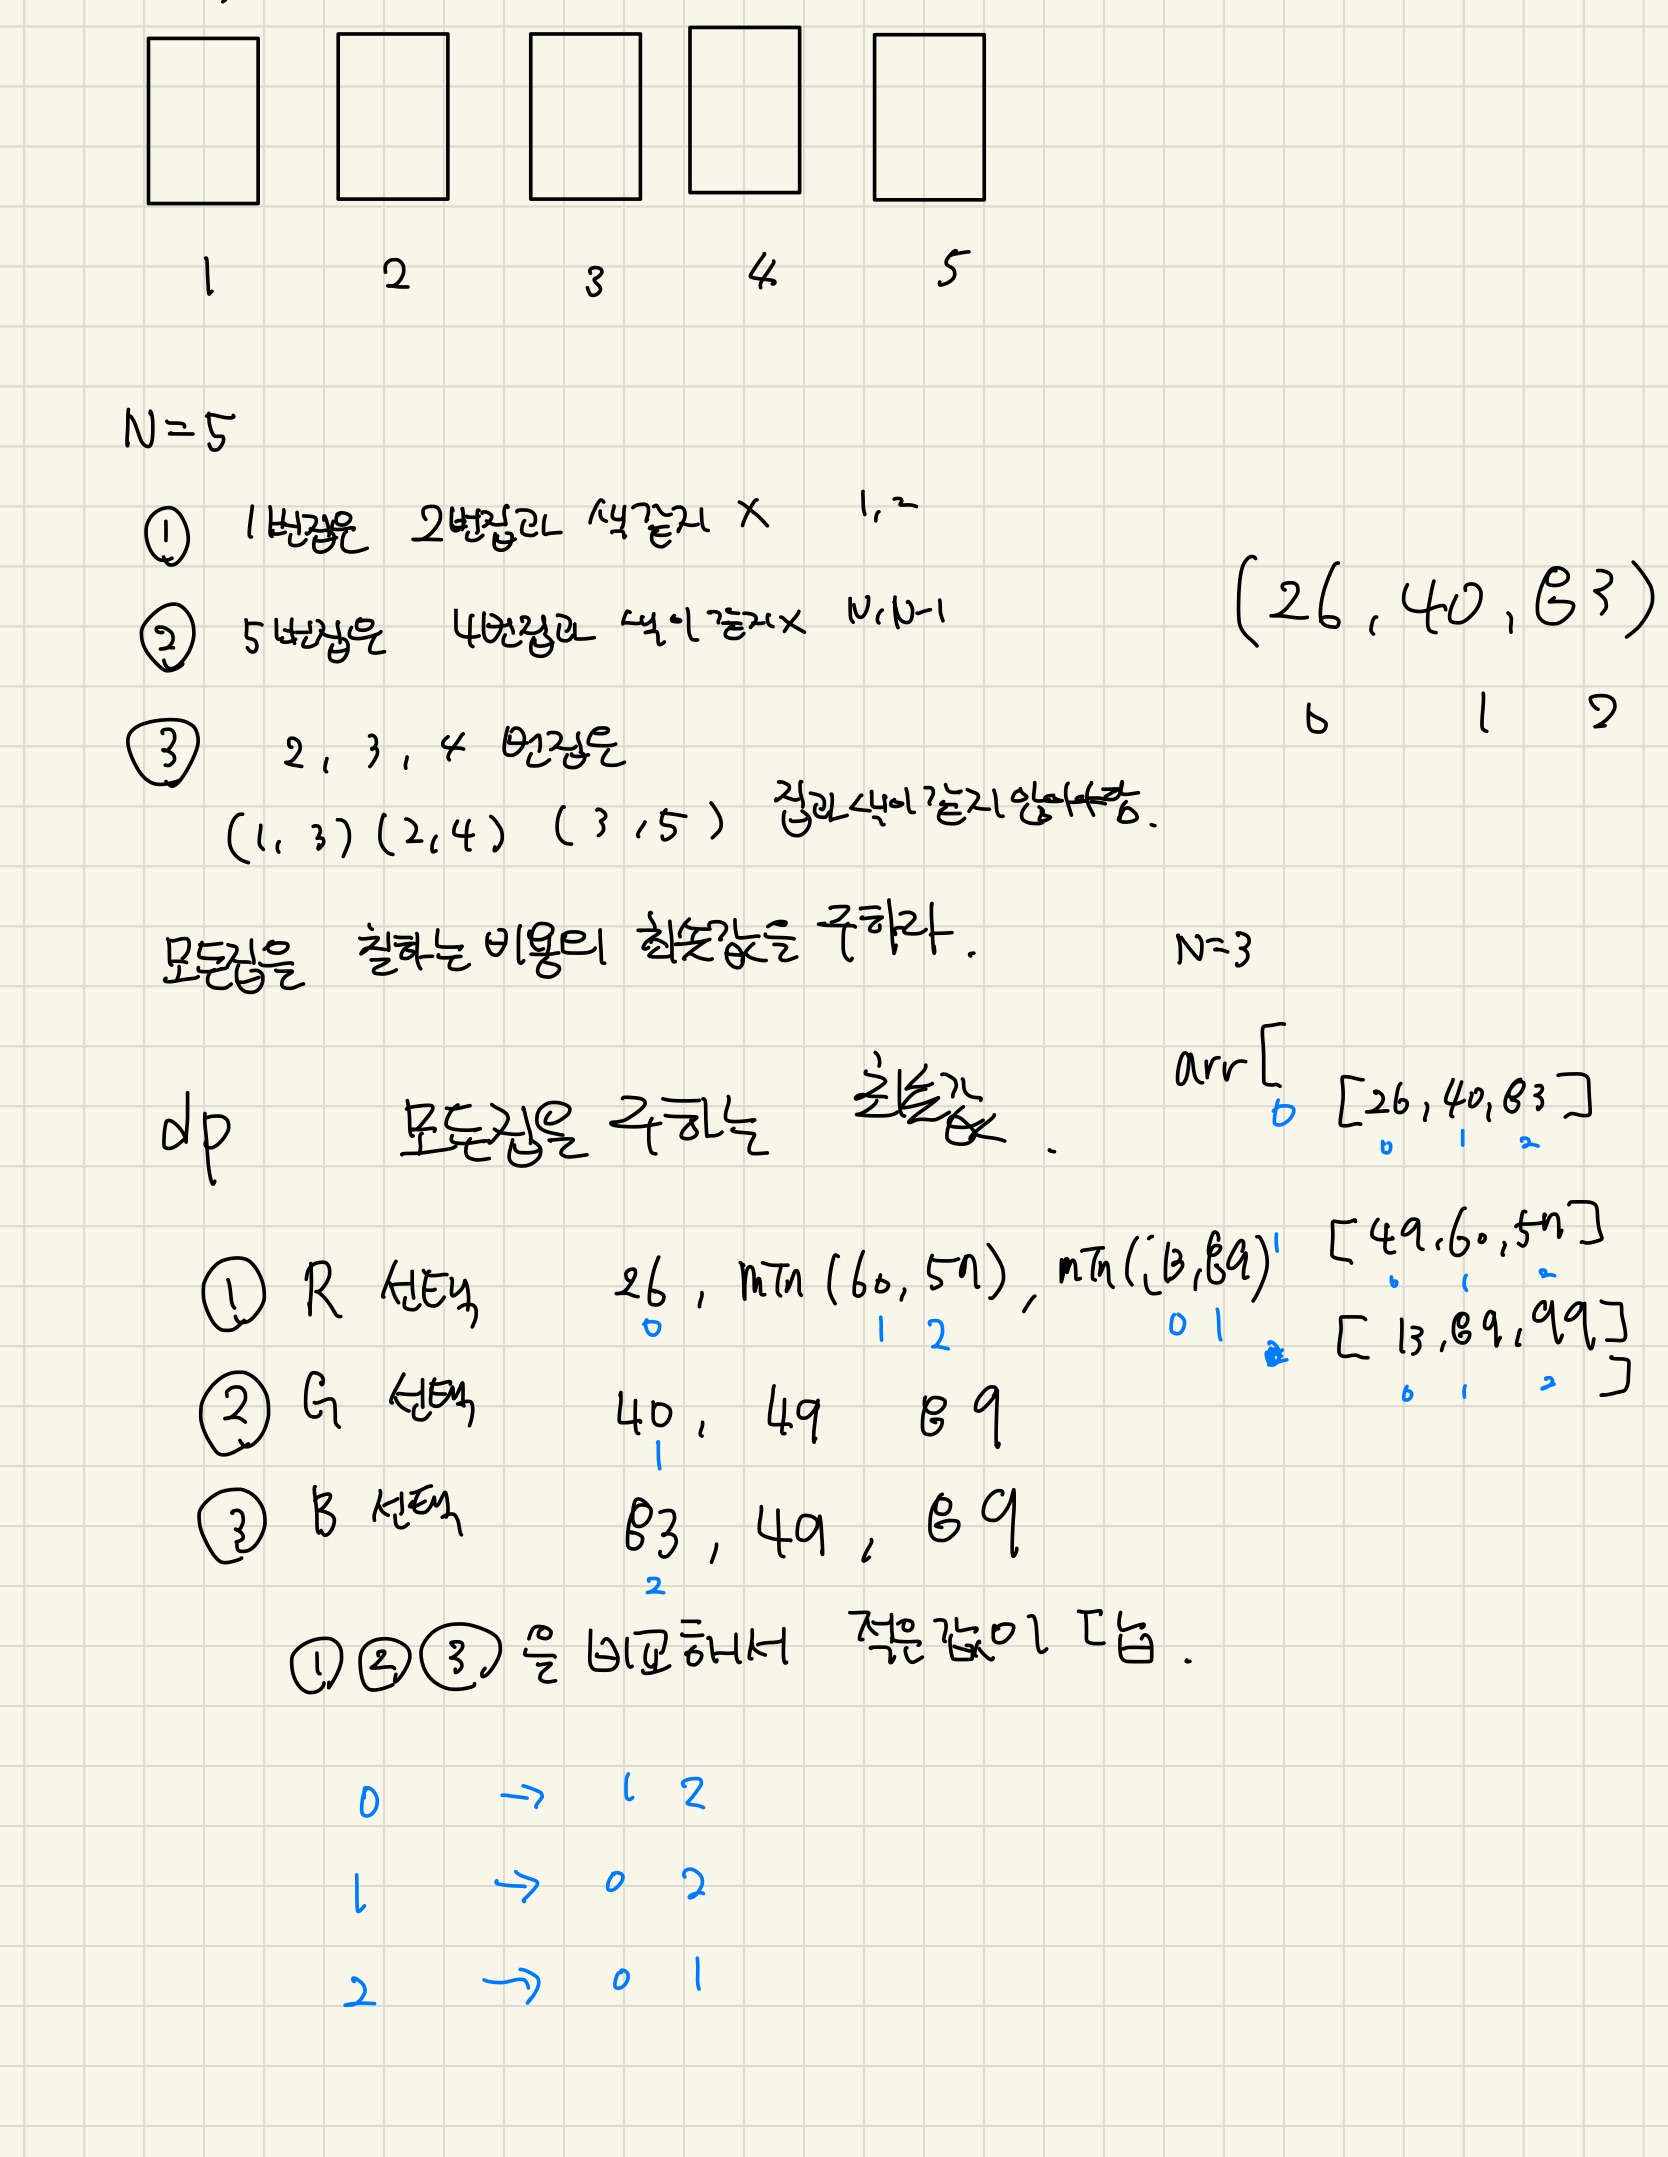 1 2 3 4 5
N=5
① 1번집은 2번집과 색같지 X 1,2
② 5번집은 4번집과 색이 같지X N,N-1
(26, 40, 83)
0 1 2
③ 2, 3, 4 번집은
(1, 3) (2,4) (3,5) 집과 색이 같지 않아야함.
모든집을 칠하는 비용의 최솟값을 구하라.
N=3
arr[
0 [26, 40, 83]
0 1 2
dp 모든집을 구하는 최솟값.
1 [49, 60, 57]
0 1 2
① R 선택 26, min(60, 57), min(13, 89)
0 1 2 0 1
2 [13, 89, 99]
0 1 2
]
② G 선택 40, 49 89
1
③ B 선택 83, 49, 89
2
① ② ③ 을 비교해서 적은값이 답.
0 → 1 2
1 → 0 2
2 → 0 1